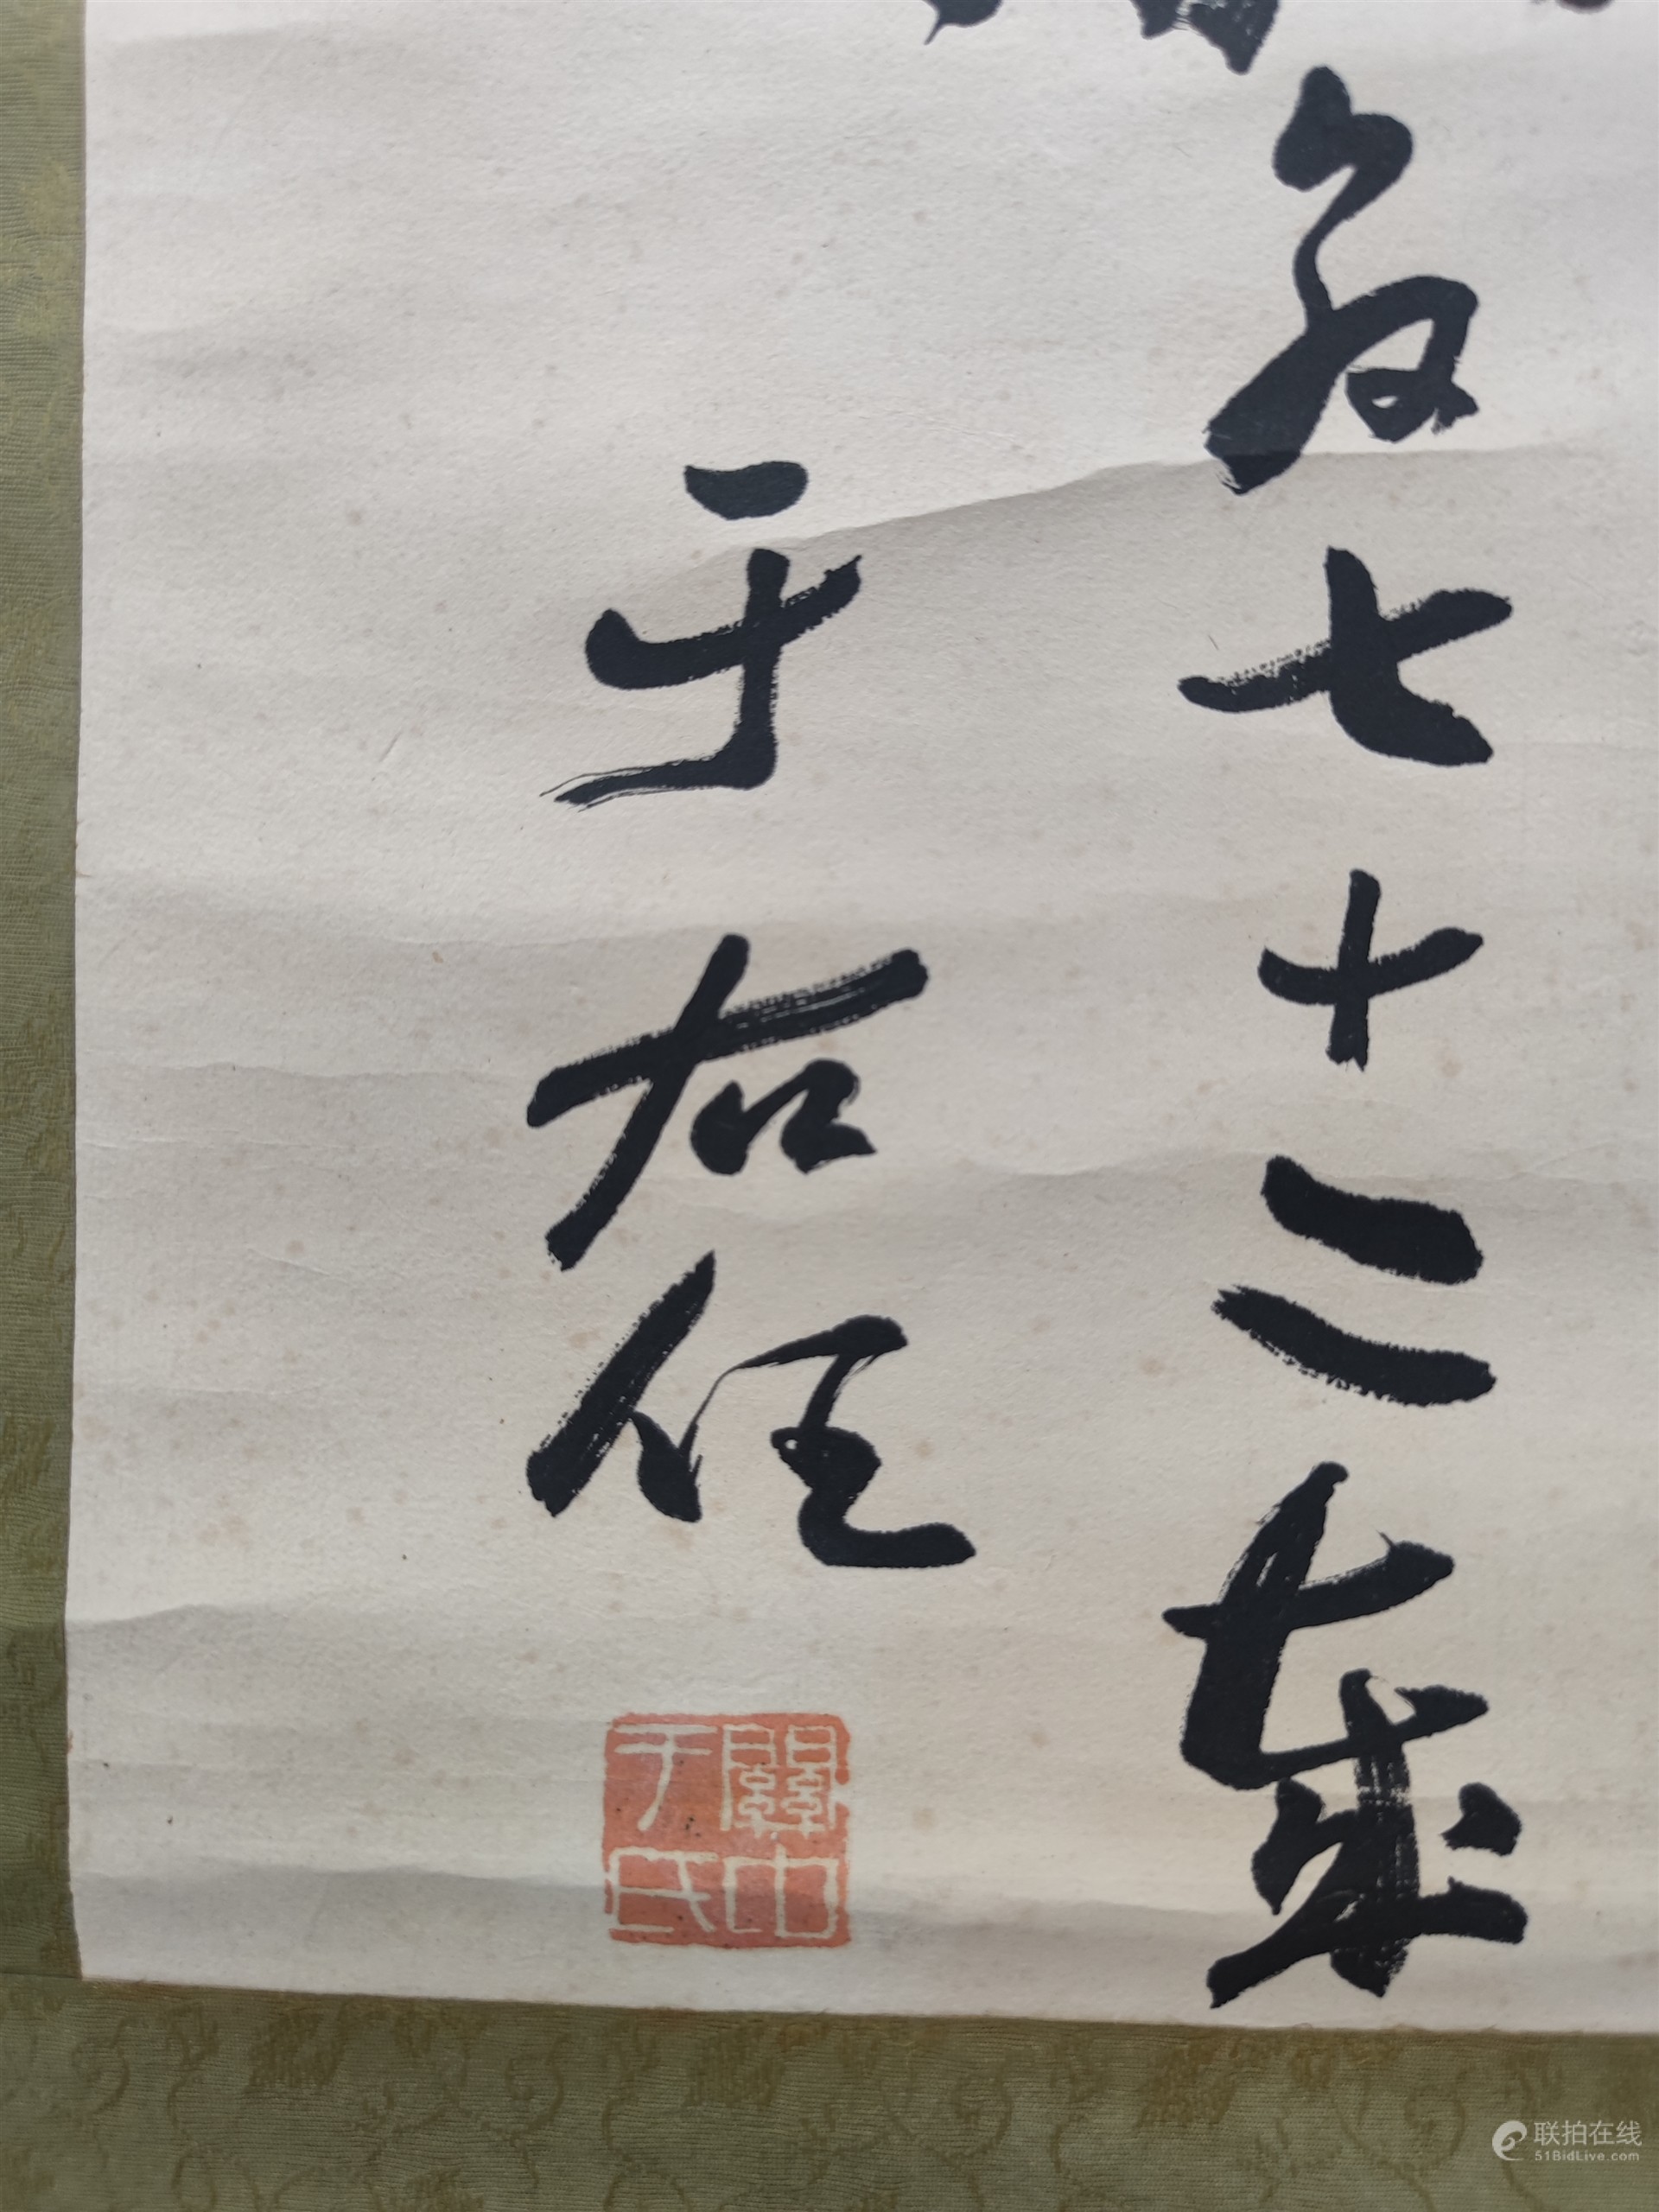 七十二
于右任
關中于氏
联拍在线
51BidLive.com